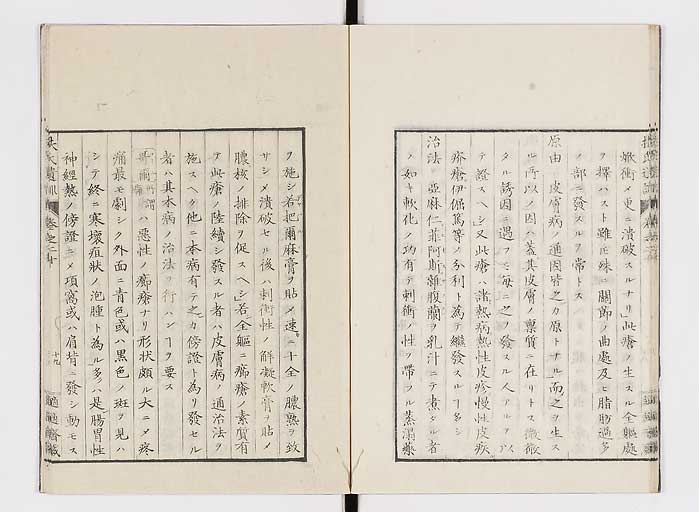 焮衝ノ更ニ潰破スルナリ此瘡ノ生スル全軀處
ヲ擇ハスト雖モ殊ニ關節ノ曲處及ヒ脂肪過多
ノ部ニ發スルヲ常トス
原由 皮膚病ノ通因皆之カ原トナル而之ヲ生ス
ル所以ノ因ハ蓋其皮膚ノ稟質ニ在リトス微微
タル誘因ニ遇フ毎ニ之ヲ發スル人アル
テ證スヘシ又此瘡ハ諸熱病熱性皮疹慢性皮疾
痧瘡伊偏篤等ノ分利ト為テ繼發スルヿ多シ
治法 亞麻仁菲阿斯雜腹蘭ヲ乳汁ニテ煮シル者
ノ如キ軟化ノ功有テ刺衝ノ性ヲ帶フル蒸溻藥
ヲ施シ若把爾麻膏ヲ貼メ速ニ十全ノ膿熟ヲ致
サシメ潰破セル後ハ刺衝性ノ解凝軟膏ヲ貼メ
膿核ノ排除ヲ促スヘシ若全軀ニ癤瘡ノ素質有
テ此瘡ノ陸續シ發スル者ハ皮膚病ノ通治法ヲ
施スヘク他ニ本病有テ之カ傍證ト為リ發セル
者ハ其本病ノ治法ヲ行ハンヿヲ要ス
ハ惡性ノ癤瘡ナリ形狀頗ル大ニメ疼
痛最モ劇シク外面ニ青色或ハ黒色ノ斑ヲ見ハ
シテ終ニ寒壞疽狀ノ泡腫ト為ル多クハ是腸胃性
神經熱ノ傍證ニメ項窩或ハ肩背ニ發シ動モス
扶氏遺訓 卷之二十 十九 適適齋藏